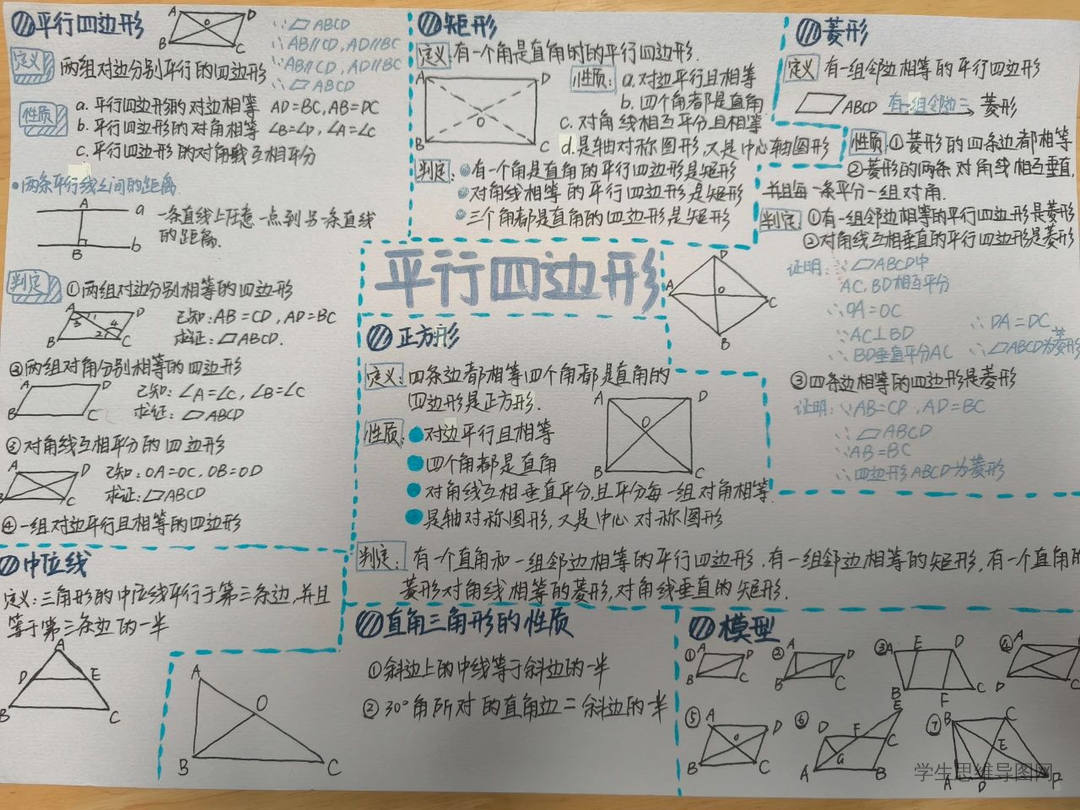 平行四边形
A D O B C
∵▱ABCD
∴AB∥CD,AD∥BC
∵AB∥CD,AD∥BC
∴▱ABCD
定义 两组对边分别平行的四边形
性质 a.平行四边形的对边相等 AD=BC,AB=DC
b.平行四边形的对角相等 ∠B=∠D,∠A=∠C
c.平行四边形的对角线互相平分
两条平行线之间的距离
A a
B b
一条直线上任意一点到另一条直线
的距离.
判定 ①两组对边分别相等的四边形
A D B C 3 1 4 2
已知:AB=CD,AD=BC
求证:▱ABCD.
②两组对角分别相等的四边形
A D B C
已知:∠A=∠C,∠B=∠C
求证:▱ABCD
③对角线互相平分的四边形
A D B C
已知:OA=OC,OB=OD
求证:▱ABCD
④一组对边平行且相等的四边形
中位线
定义:三角形的中位线平行于第三条边,并且
等于第三条边的一半
A D E B C
矩形
定义:有一个角是直角的的平行四边形.
A D O B C
性质: a.对边平行且相等
b.四个角都是直角
c.对角线相互平分且相等
d.是轴对称图形,又是中心轴图形
判定: 有一个角是直角的平行四边形是矩形
对角线相等的平行四边形是矩形
三个角都是直角的四边形是矩形
菱形
定义 有一组邻边相等的平行四边形
▱ABCD 有一组邻边 菱形
性质: ①菱形的四条边都相等
②菱形的两条对角线相互垂直,
并且每一条平分一组对角.
判定 ①有一组邻边相等的平行四边形是菱形
②对角线互相垂直的平行四边形是菱形
D A O C B
证明:∵▱ABCD中
AC,BD相互平分
∴OA=OC
∵AC⊥BD
∴BD垂直平分AC
∴DA=DC
∴▱ABCD为菱形
③四条边相等的四边形是菱形
证明:∵AB=CD,AD=BC
∴▱ABCD
∵AB=BC
∴四边形ABCD为菱形
平行四边形
正方形
定义:四条边都相等四个角都是直角的
四边形是正方形.
A D O B C
性质: 对边平行且相等
四个角都是直角
对角线互相垂直平分,且平分每一组对角相等.
是轴对称图形,又是中心对称图形
判定: 有一个直角和一组邻边相等的平行四边形.有一组邻边相等的矩形,有一个直角的
菱形对角线相等的菱形,对角线垂直的矩形.
直角三角形的性质
A O B C
①斜边上的中线等于斜边的一半
②30°角所对的直角边=斜边的一半
模型
① A D B C
② A D B C
③ A E D B F C
④ A D B C
⑤ A D O B C
⑥ E D F C G A B
⑦ B C E A D F
学生思维导图网